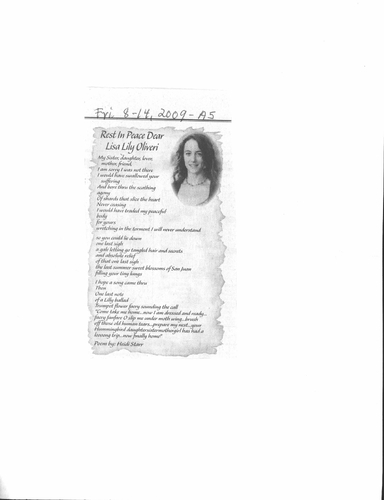 Fri. 8-14, 2009 - A5
Rest In Peace Dear
Lisa Lily Oliveri
My Sister, daughter, lover,
mother, friend,
I am sorry I was not there
I would have swallowed your
suffering
And born thee the scathing
agony
Of shards that slice the heart
Never ceasing
I would have traded my peaceful
body
for yours
wretching in the torment I will never understand
so you could lie down
one last sigh
a gale letting go tangled hair and secrets
and absolute relief
of that one last sigh
the last summer sweet blossoms of San Juan
filling your tiny lungs
I hope a song came then
Then
One last note
of a Lily ballad
Trumpet flower faery sounding the call
"Come take me home...now I am dressed and ready...
faery fanfare O slip me under moth wing...brush
off these old human tears...prepare my nest...your
Hummingbird daughtersistermothergirl has had a
looong trip...now finally home!"
Poem by: Heidi Starr